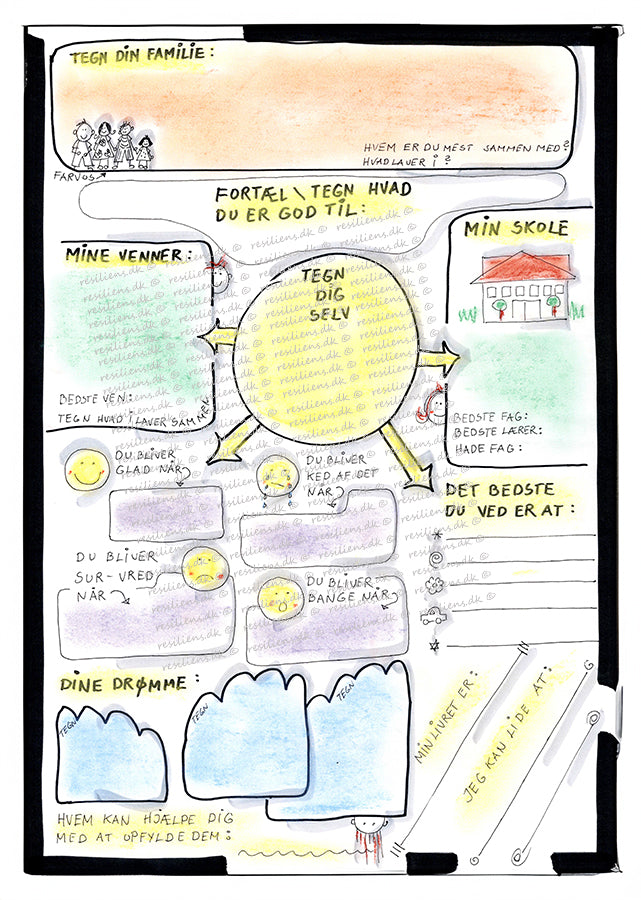 TEGN DIN FAMILIE:
HVEM ER DU MEST SAMMEN MED?
HVAD LAVER I?
FARVOS
FORTÆL \ TEGN HVAD
DU ER GOD TIL:
MINE VENNER:
BEDSTE VEN:
TEGN HVAD I LAVER SAMMEN
TEGN
DIG
SELV
MIN SKOLE
BEDSTE FAG:
BEDSTE LÆRER:
HADE FAG:
DU BLIVER
GLAD NÅR
DU BLIVER
KED AF DET
NÅR
DU BLIVER
SUR-VRED
NÅR
DU BLIVER
BANGE NÅR
DET BEDSTE
DU VED ER AT:
DINE DRØMME:
TEGN
TEGN
TEGN
HVEM KAN HJÆLPE DIG
MED AT OPFYLDE DEM:
MIN LIVRET ER:
JEG KAN LIDE AT:
resiliens.dk ©